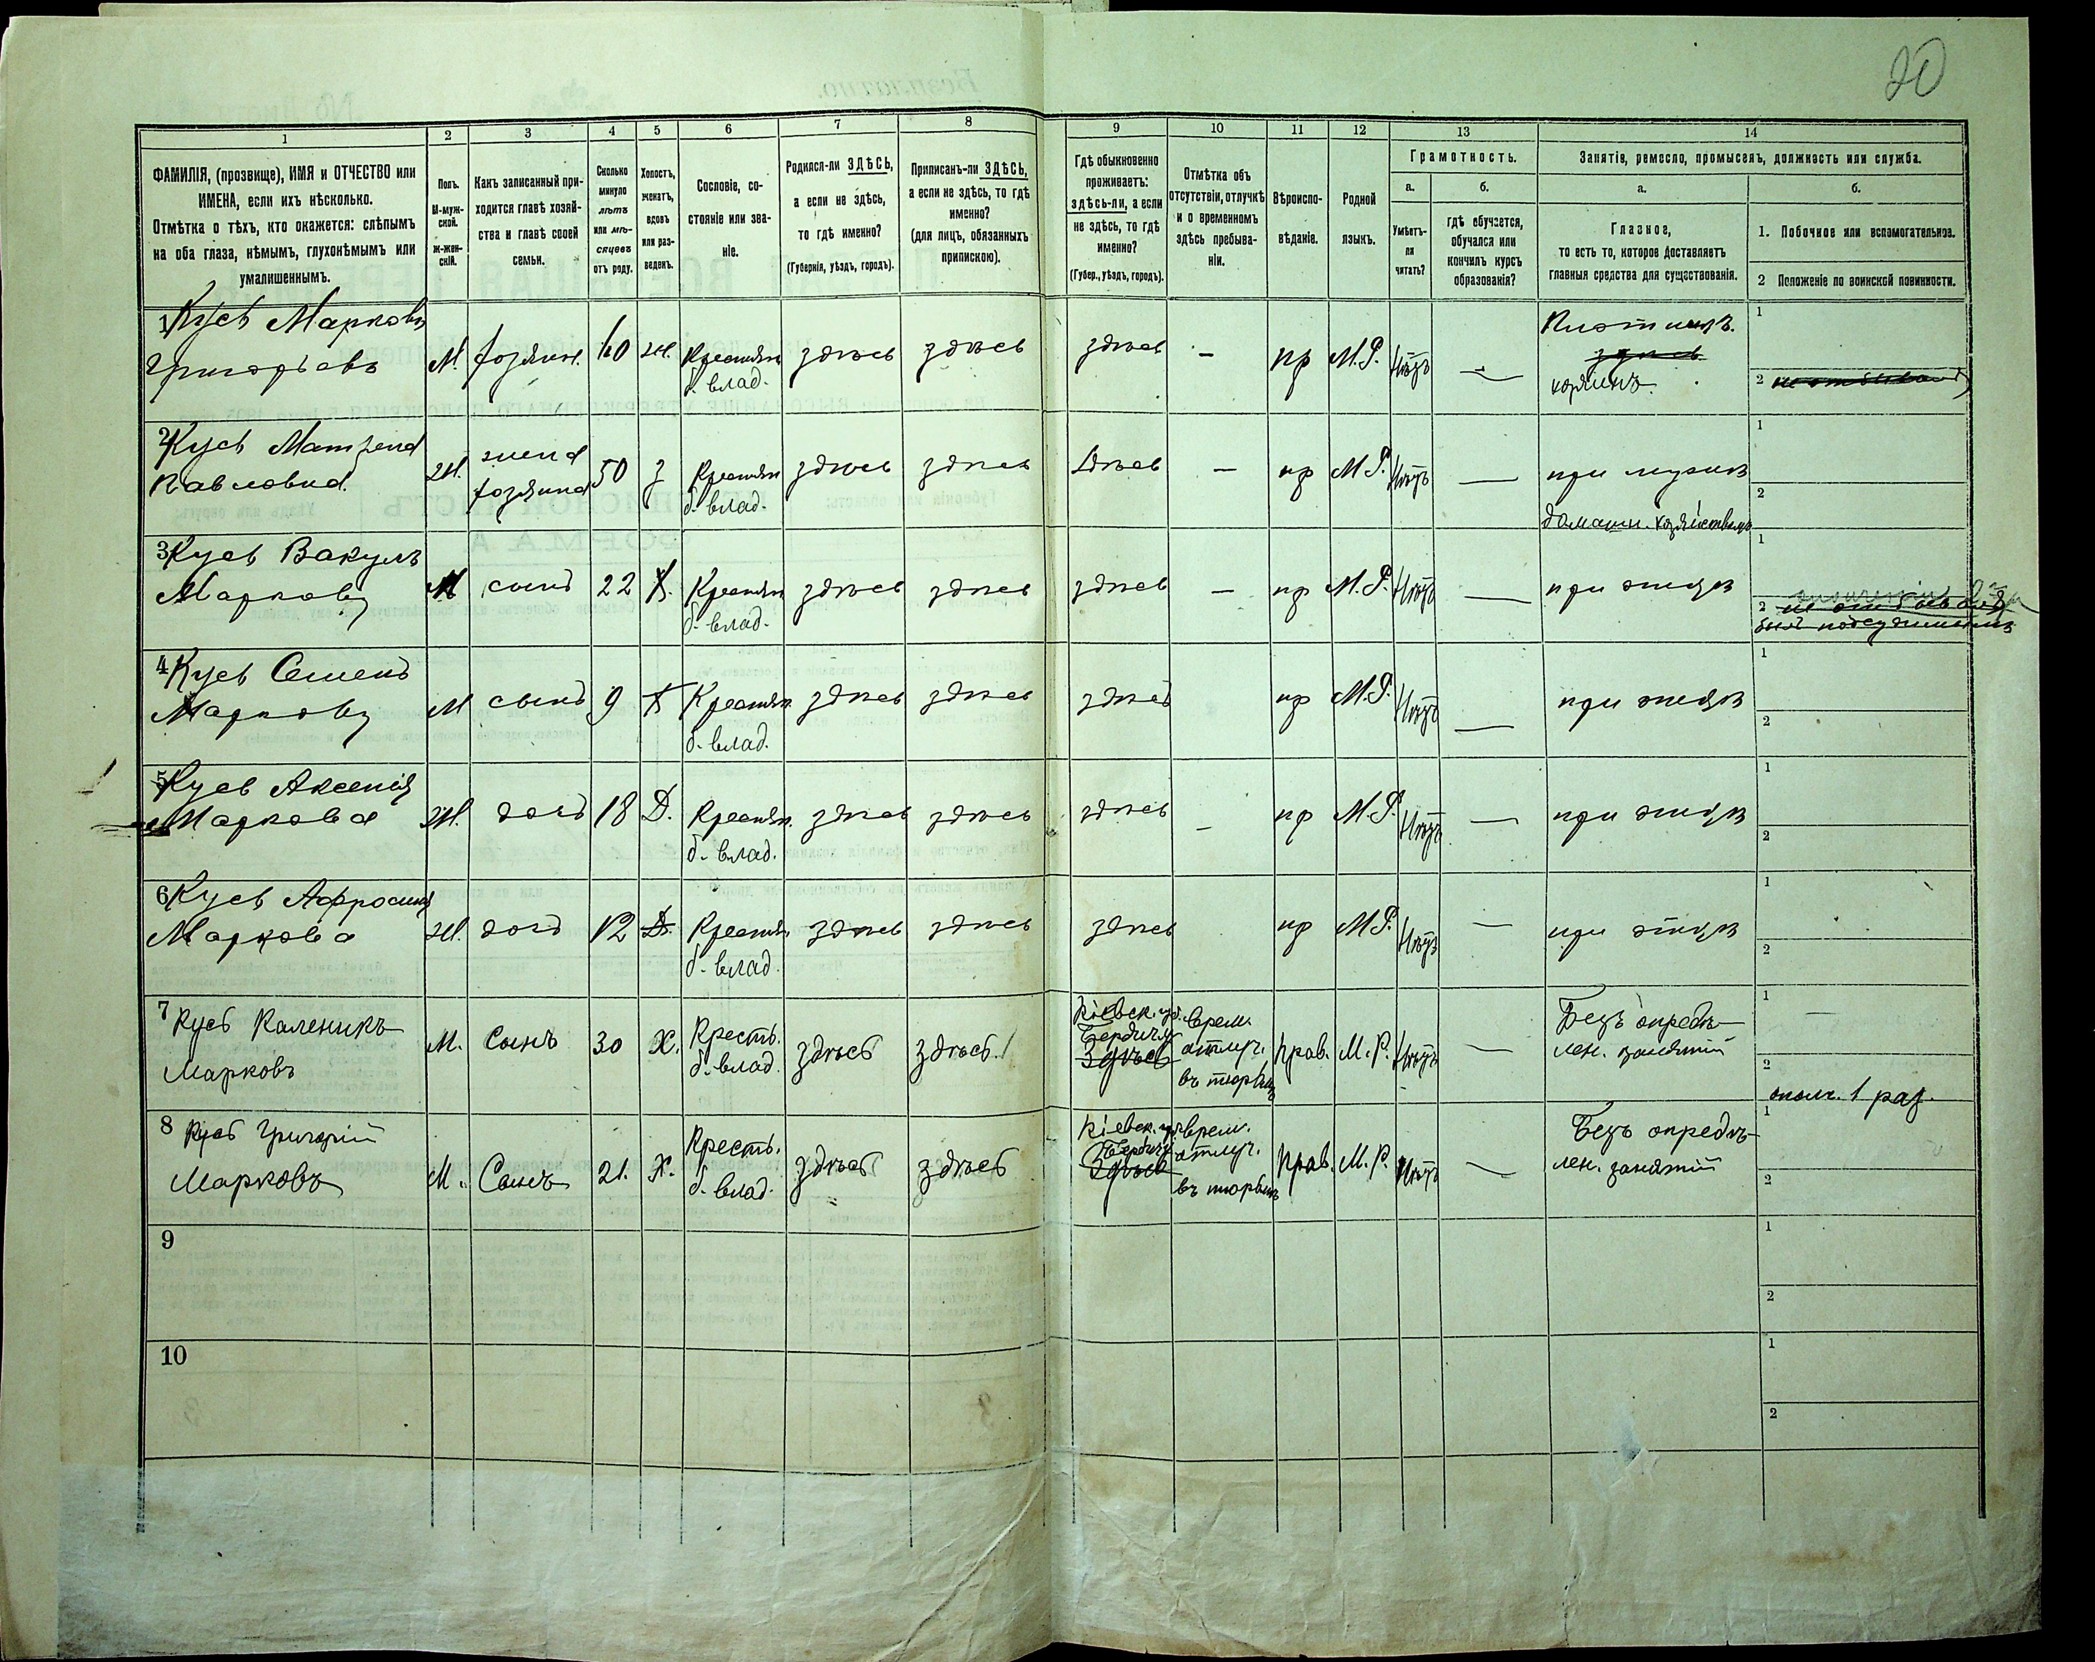 20
1 2 3 4 5 6 7 8 9 10 11 12 13 14
ФАМИЛІЯ, (прозвище), ИМЯ и ОТЧЕСТВО или
ИМЕНА, если ихъ нѣсколько.
Отмѣтка о тѣхъ, кто окажется: слѣпымъ
на оба глаза, нѣмымъ, глухонѣмымъ или
умалишеннымъ.
Полъ.
М-муж-
ской.
ж-жен-
скій.
Какъ записанный при-
ходится главѣ хозяй-
ства и главѣ своей
семьи.
Сколько
минуло
лѣтъ
или мѣ-
сяцевъ
отъ роду.
Холостъ,
женатъ,
вдовъ
или раз-
веденъ.
Сословіе, со-
стояніе или зва-
ніе.
Родился-ли ЗДѢСЬ,
а если не здѣсь,
то гдѣ именно?
(Губернія, уѣздъ, городъ).
Приписанъ-ли ЗДѢСЬ,
а если не здѣсь, то гдѣ
именно?
(для лицъ, обязанныхъ
припискою).
Гдѣ обыкновенно
проживаетъ:
здѣсь-ли, а если
не здѣсь, то гдѣ
именно?
(Губер., уѣздъ, городъ).
Отмѣтка объ
отсутствіи, отлучкѣ
и о временномъ
здѣсь пребыва-
ніи.
Вѣроиспо-
вѣданіе.
Родной
языкъ.
Грамотность.
а.
Умѣетъ-
ли
читать?
б.
гдѣ обучается,
обучался или
кончилъ курсъ
образованія?
Занятіе, ремесло, промыселъ, должность или служба.
а.
Главное,
то есть то, которое доставляетъ
главныя средства для существованія.
б.
1. Побочное или вспомогательное.
2 Положеніе по воинской повинности.
1 Кусъ Марковъ
Григорьевъ
М. хозяин. 60 ж. Крестьян
б. влад.
здѣсь здѣсь здѣсь – пр М.Р. Нѣтъ —
Плотникъ.
здѣсь
хозяинъ.
1
2
2 Кусь Матрена
Павловна
Ж. жена
хозяина
50 з Крестьян
б. влад.
здѣсь здѣсь здѣсь – пр М.Р. Нѣтъ —
при мужѣ
домашн. хозяйствомъ
1
2
3 Кусь Вакулъ
Марковъ
М сынъ 22 Х. Крестьян
б. влад.
здѣсь здѣсь здѣсь – пр М.Р. Нѣтъ — при отцѣ
1
2
4 Кусь Семенъ
Марковъ
М сынъ 9 Х Крестьян
б. влад.
здѣсь здѣсь здѣсь пр М.Р. Нѣтъ — при отцѣ
1
2
5 Кусь Аксенія
Маркова
Ж. дочь 18 Д. Крестьян.
б. влад.
здѣсь здѣсь здѣсь – пр М.Р. Нѣтъ — при отцѣ
1
2
6 Кусь Афросинія
Маркова
Ж. дочь 12 Д. Крестьян
б. влад.
здѣсь здѣсь здѣсь пр М.Р. Нѣтъ — при отцѣ
1
2
7 Кусъ Каленикъ
Марковъ
М. Сынъ 30 Х. Кресть.
б. влад.
здѣсь здѣсь.
Кіевск. гу.
Бердичу
Здѣсь
врем.
отлуч.
въ тюрьмѣ
прав. М.Р. Нѣтъ —
Безъ опредѣ-
лен. занятій
1 —
2
ополч. 1 раз.
8 Кусъ Григорій
Марковъ
М. Сынъ 21. Х. Кресть.
б. влад.
здѣсь здѣсь
Кіевск. гу
Бердичу
Здѣсь
врем.
отлуч.
въ тюрьмѣ
прав. М.Р. Нѣтъ —
Безъ опредѣ-
лен. занятій
1
2
9
1
2
10
1
2